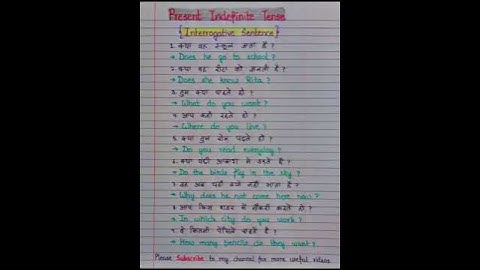 Present Indefinite Tense
{Interrogative Sentence}
1. क्या वह स्कूल जाता है ?
→ Does he go to school?
2. क्या वह रीटा को जानती है ?
→ Does she know Rita?
3. तुम क्या चाहते हो ?
→ What do you want?
4. आप कहाँ रहते हो ?
→ Where do you live?
5. क्या तुम रोज पढ़ते हो ?
→ Do you read everyday?
6. क्या पक्षी आकाश में उड़ते हैं ?
→ Do the birds fly in the sky?
7. वह अब यहाँ क्यों नहीं आता है ?
→ Why does he not come here now?
8. आप किस शहर में नौकरी करते हो ?
→ In which city do you work?
9. वे कितनी पेंसिलें चाहते हैं ?
→ How many pencils do they want?
Please Subscribe to my channel for more useful videos